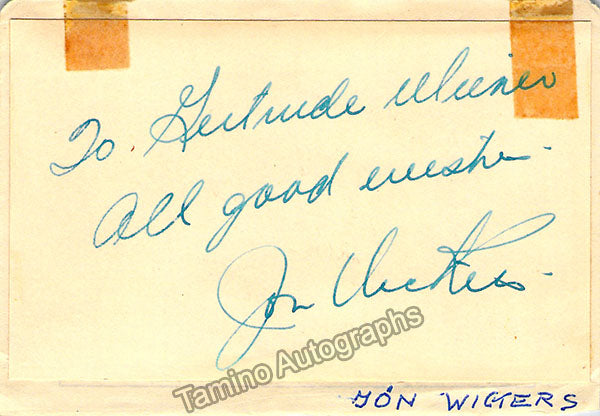 To Gertrude Wiener
All good wishes.
Jon Vickers.
Tamino Autographs
JÓN WICKERS